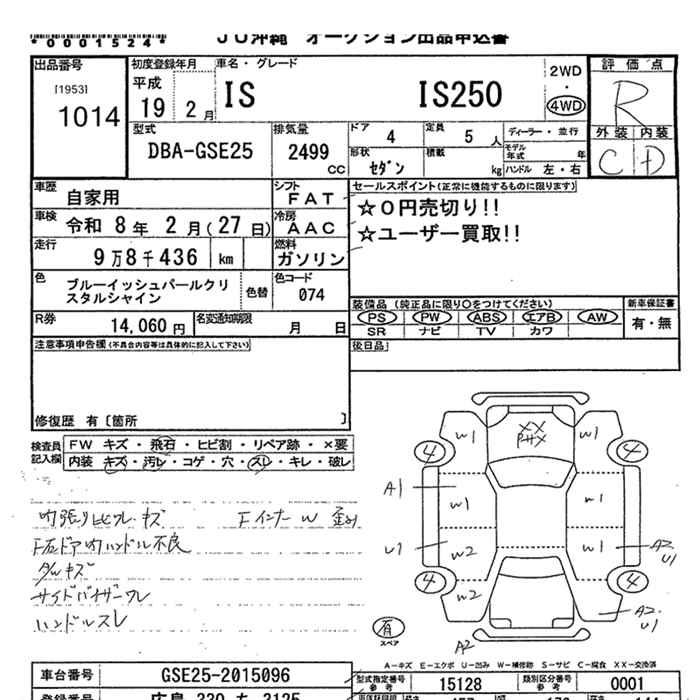 *0001524*
JU沖縄 オークション出品申込書
出品番号
[1953]
1014
初度登録年月
平成
19 2月
車名・グレード
IS IS250
2WD
・
4WD
評価点
R
外装 内装
C D
型式
DBA-GSE25
排気量
2499
CC
ドア 4
定員 5 人
ディーラー・並行
形状
セダン
積載
kg
モデル年式 年
ハンドル 左・右
車歴
自家用
シフト
FAT
車検
令和 8年 2月(27日)
冷房
AAC
走行
9万8千436 km
燃料
ガソリン
色
ブルーイッシュパールクリスタルシャイン
色替
色コード
074
R券
14,060 円
名変通知期限
月 日
セールスポイント(正常に機能するものに限ります)
☆0円売切り!!
☆ユーザー買取!!
装備品 (純正品に限り○をつけてください)
PS PW ABS エアB AW
SR ナビ TV カワ
新車保証書
有・無
後日品
注意事項申告欄(不具合内容等は具体的に記入して下さい)
修復歴 有[箇所 ]
検査員記入欄
FW キズ・飛石・ヒビ割・リペア跡・×要
内装 キズ・汚レ・コゲ・穴・スレ・キレ・破レ
Fインナー W 歪み
F右ドア内ハンドル不良
ダッシュキズ
サイドバイザーワレ
ハンドルスレ
W1
XX
W1
4
4
A1
W1
W1
U1
W2
W1
A2
U1
4
4
W2
A2
U1
有
スペア
A2
A-キズ E-エクボ U-凹み W-補修跡 S-サビ C-腐食 XX-交換済
車台番号
GSE25-2015096
型式指定番号
参考
15128
類別区分番号
参考
0001
登録番号
広島 330 ち 3125